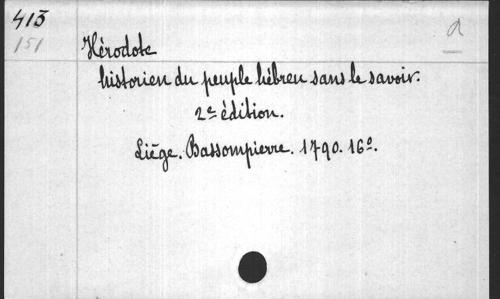 413
151
a
Hérodote
historien du peuple hébreu sans le savoir.
2e édition.
Liége. Bassompierre. 1790. 16o.